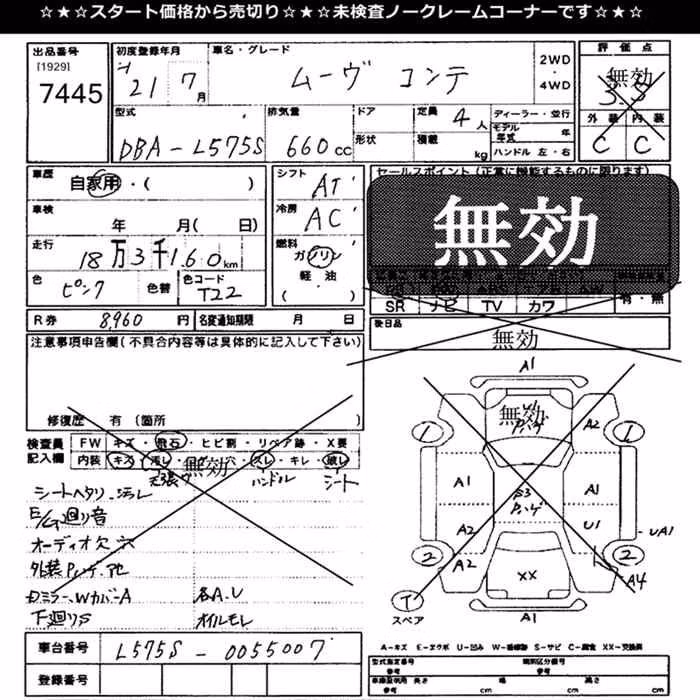 ☆★☆★スタート価格から売切り☆★☆★未検査ノークレームコーナーです☆★☆
出品番号 [1929] 7445
初度登録年月 H 21 7 月
車名・グレード ムーヴ コンテ
2WD ・ 4WD
評価点 無効 3.5
外装 内装
C C
型式 DBA-L575S
排気量 660 cc
ドア
形状
定員 4 人
積載 kg
ディーラー・並行
モデル年式 年
ハンドル 左・右
車歴 自家用・( )
シフト AT
車検 年 月( 日)
冷房 AC
走行 18万3千160 km
燃料 ガソリン 軽油 ( )
色 ピンク 色替
色コード T22
R券 8,960 円
名変通知期限 月 日
セールスポイント(正常に機能するものに限ります)
無効
SR ナビ TV カワ
有・無
後日品 無効
注意事項申告欄(不具合内容等は具体的に記入して下さい)
修復歴 有(箇所
検査員記入欄
FW キズ・飛石・ヒビ割・リペア跡・X要
内装 キズ
スレ・キレ・破レ
無効
天張り ハンドル シート
シートヘタリ・汚レ
E/G廻り音
オーディオ欠 穴
外装
Dミラー、WカバーA
各A.U
下廻りS
オイルモレ
車台番号 L575S-0055007
登録番号
A1
無効
1 A2 1
A1 A1
S3
A2 U1 UA1
2 A2 XX 2
A4
T スペア
A1
A-キズ E-エクボ U-凹み W-補修跡 S-サビ C-腐食 XX-交換済
型式指定番号 参考
類別区分番号 参考
車検証使用 長さ 参考 cm
幅 cm
高さ cm